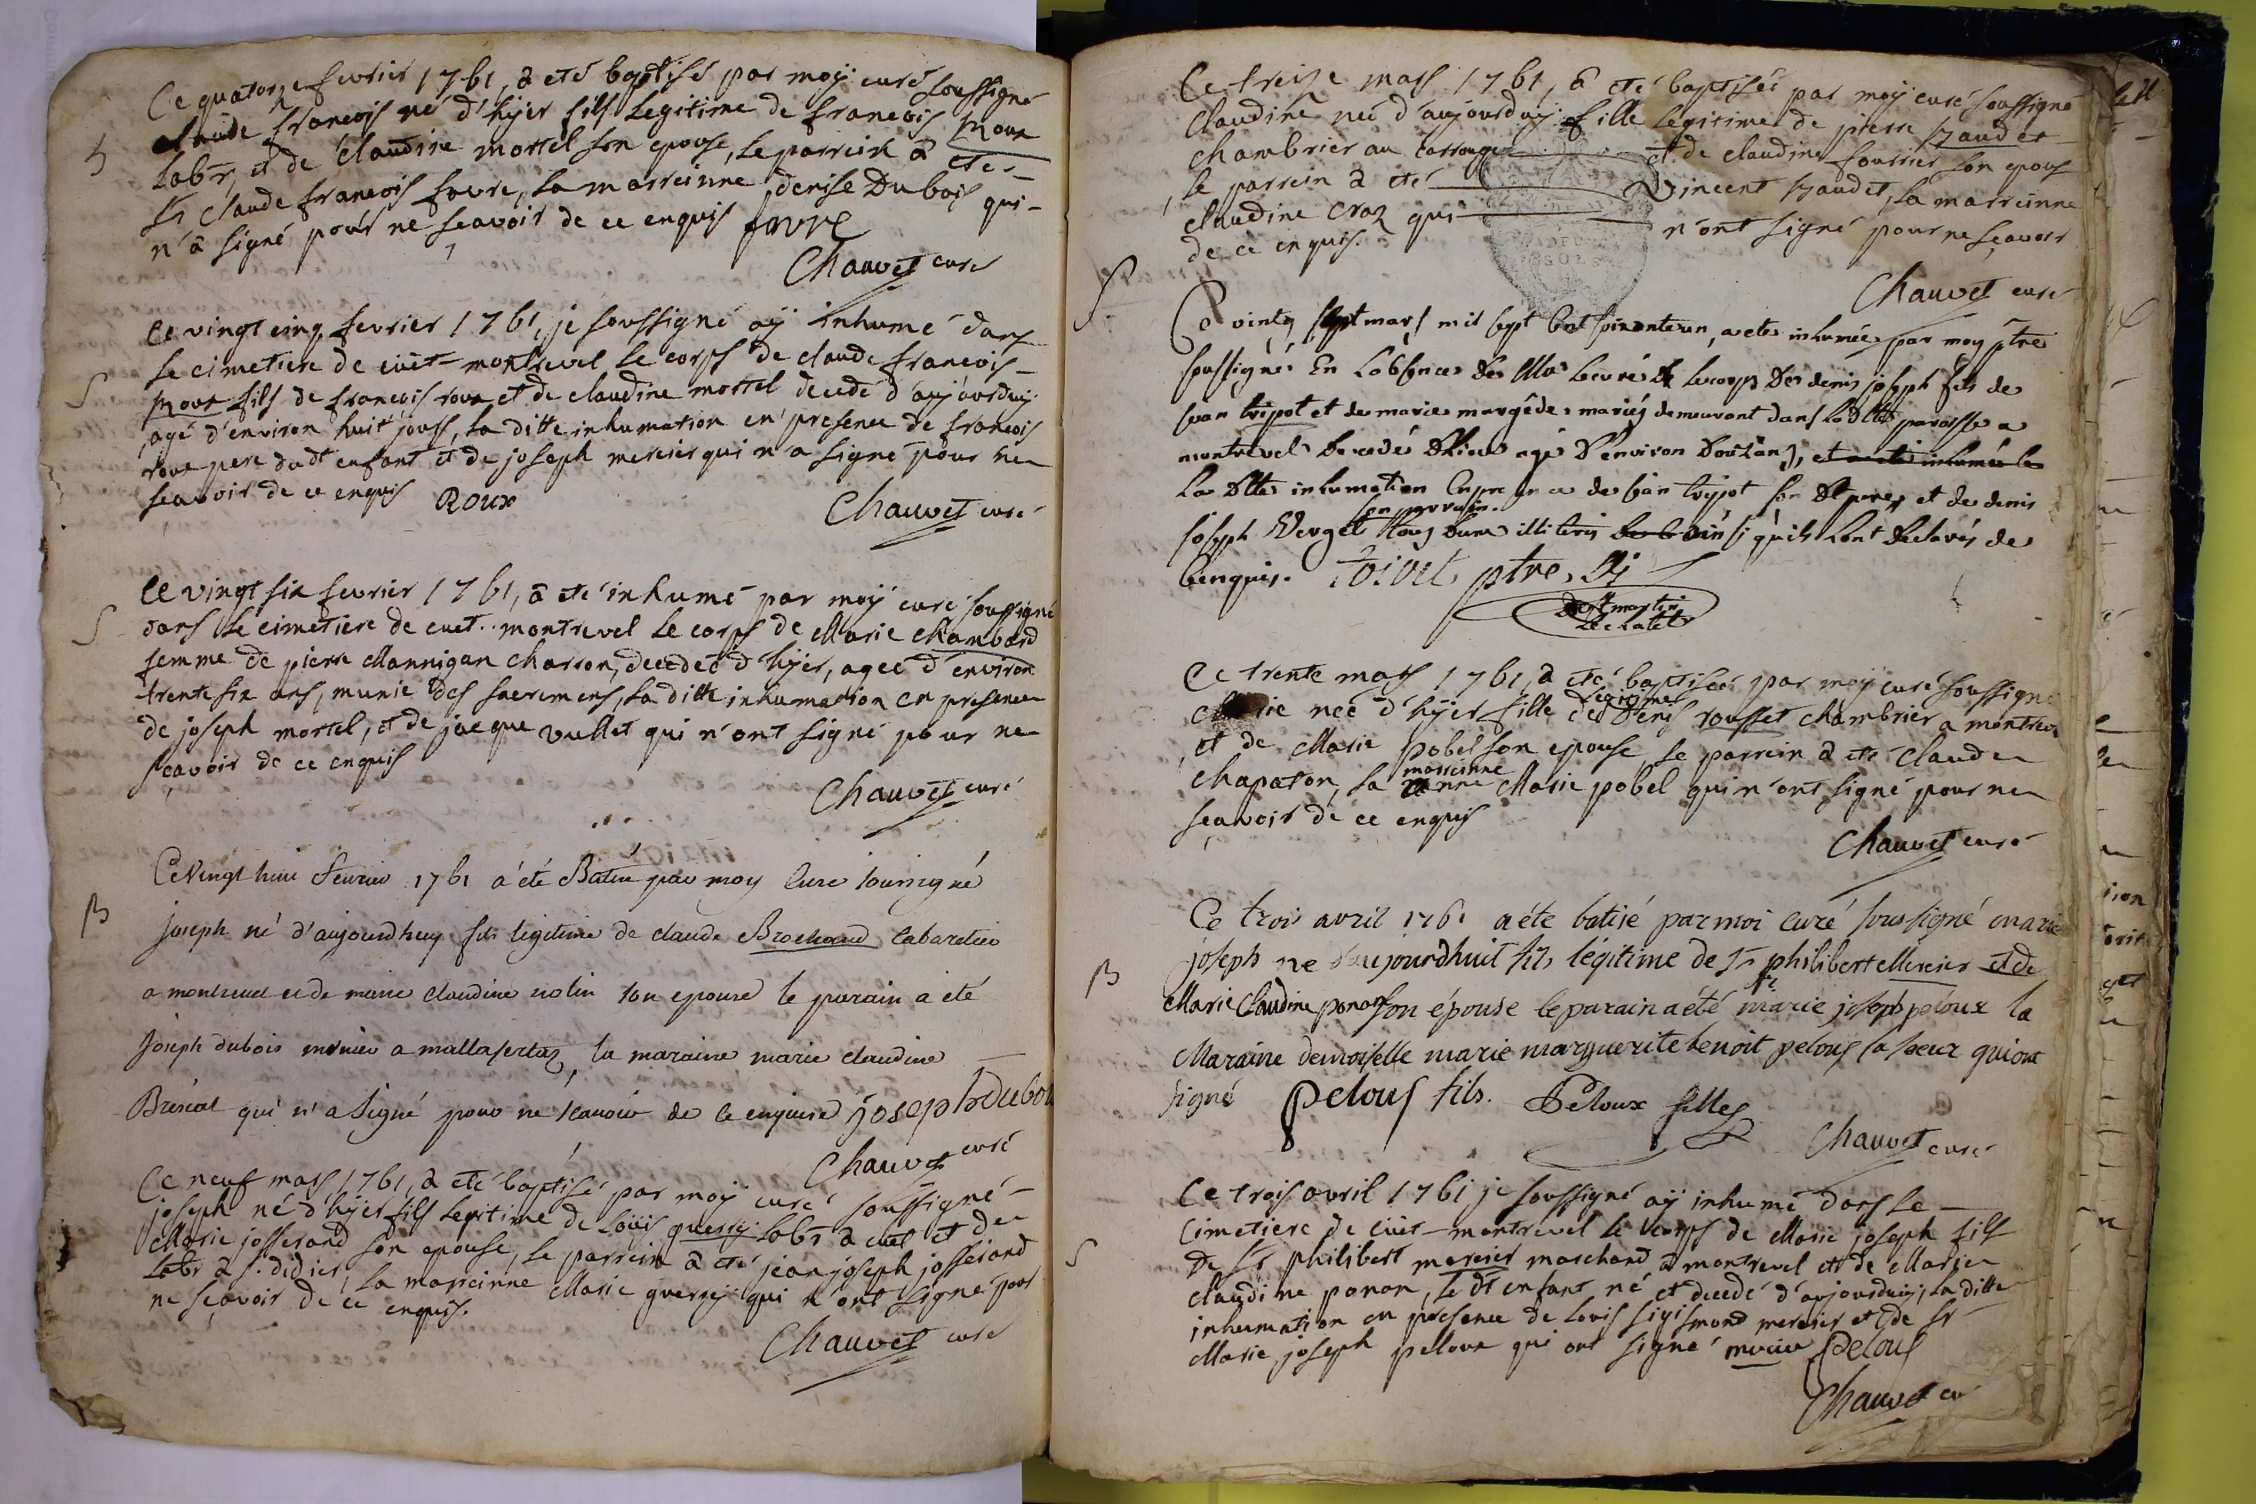 Ce quatorze fevrier 1761, a eté baptisé par moÿ curé soussigné
claude francois né d'hÿer fils legitime de francois Roux
labr, et de claudine mortel son epouse, le parrein a eté
Sr claude francois favre, la marreinne denise Dubois qui
n'a signé pour ne scavoir de ce enquis favre
Chauvet curé
Ce vingt cinq fevrier 1761, je soussigné aÿ inhumé dans
le cimetiere de cuèt-montrevel le corps de claude francois
Roux fils de francois roux et de claudine mortel decedé d'aujourduÿ
agé d'environ huit jours, la ditte inhumation en presence de francois
roux pere dudt enfant et de joseph mercier qui n'a signé pour ne
scavoir de ce enquis Roux
Chauvet curé
Ce vingt six fevrier 1761, a eté inhumé par moÿ curé soussigné
dans le cimetiere de cuet-montrevel le corps de Marie Chambard
femme de pierre Mannigan charron, decedeé d'hÿer, ageé d'environ
trente six ans, munie des sacremens, la ditte inhumation en presence
de joseph mortel, et de jacque vullet qui n'ont signé pour ne
sçavoir de ce enquis
Chauvet curé
Ce Vingt huit fevrier 1761 a été Batisé par moy Curé soussigné
joseph né d'aujourdhuy fils legitime de claude Brochand Cabaretier
a montrevel et de marie claudine nolin son epouse le parain a eté
joseph dubois meunier a mallafertaz, la maraine marie claudine
qui n'a signé pour ne scavoir de ce enquise joseph dubois
Chauvet curé
Ce neuf mars 1761, a eté baptisé par moÿ curé soussigné
joseph né d'hÿer fils legitime de Loüis guerrÿ labr a cuèt et de
Marie josserand son epouse, le parrein a eté jean joseph josserand
labr a St didier, la marreinne Marie guerrÿ qui n'ont signé pour
ne sçavoir de ce enquis.
Chauvet curé
Ce treize mars 1761, a eté baptiseé par moÿ curé soussigné
claudine neé d'aujourduÿ fille legitime de pierre
chambrier au et de claudine fourrier son epous
le parrein a eté Vincent la marreinne
claudine Craz qui n'ont signé pour ne sçavoir
de ce enquis.
Chauvet curé
Ce vintg sept mars mil sept cent soixanteun, a eté inhumée par moy ptre
soussigné En Labsence de Mr le curé le corps De denis joseph fils de
bvan tripot et de marie mariés demeurant dans La ditte paroisse a
montrevel Decedé Dhier agé D'environ Douzans, et a eté inhumée le
La ditte inhumation En presence de tripot son dt pere, et de denis
joseph Verget son parrain. tous Deux illiterés ainsi qu'ils Lont Declarés de
Cenquis. ptre
De St martin
Le chatel
Ce trente mars 1761, a eté baptiseé par moÿ curé soussigné
Marie neé d'hÿer fille legitime de Denis rousset chambrier a montrevel
et de Marie pobel son epouse le parrein a eté claude
chapaton, la marreinne Marie pobel qui n'ont signé pour ne
sçavoir de ce enquis
Chauvet curé
Ce trois avril 1761 a éte batisé par moi curé soussigné marie
joseph ne d'aujourdhuit fils légitime de Sr philibert Mercier et de
Marie Claudine ponon son épouse le parain a été Sr marie joseph peloux la
Maraine demoiselle marie marguerite benoit pelous sa soeur qui ont
signé Pelous fils. Peloux fille
Chauvet curé
Ce trois avril 1761 je soussigné aÿ inhumé dans le
cimetiere de cüet-montrevel le corps de Marie joseph fils
De Sr philibert mercier marchand a montrevel et de Marie
claudine ponon, le dt enfant né et decedé d'aujourduÿ, la ditte
inhumation en presence de Louis sigismond mercier et de Sr
Marie joseph peloux qui ont signé mercier Pelous
Chauvet cu